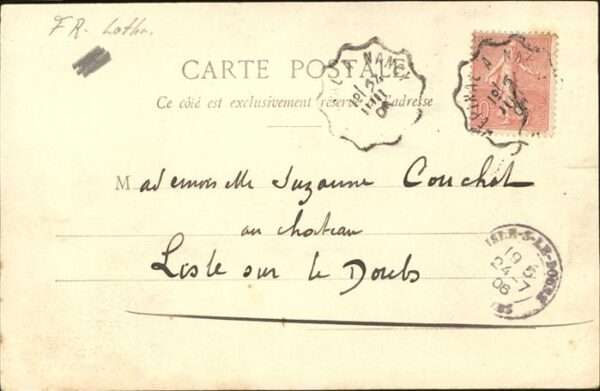 FR. Loth.
CARTE POSTALE
Ce côté est exclusivement réservé à l'adresse
A NANCY
Mademoiselle Suzanne Couchot
au château
Lisle sur le Doubs
ISLE-S-LE-DOUBS
19 5
24-7
06